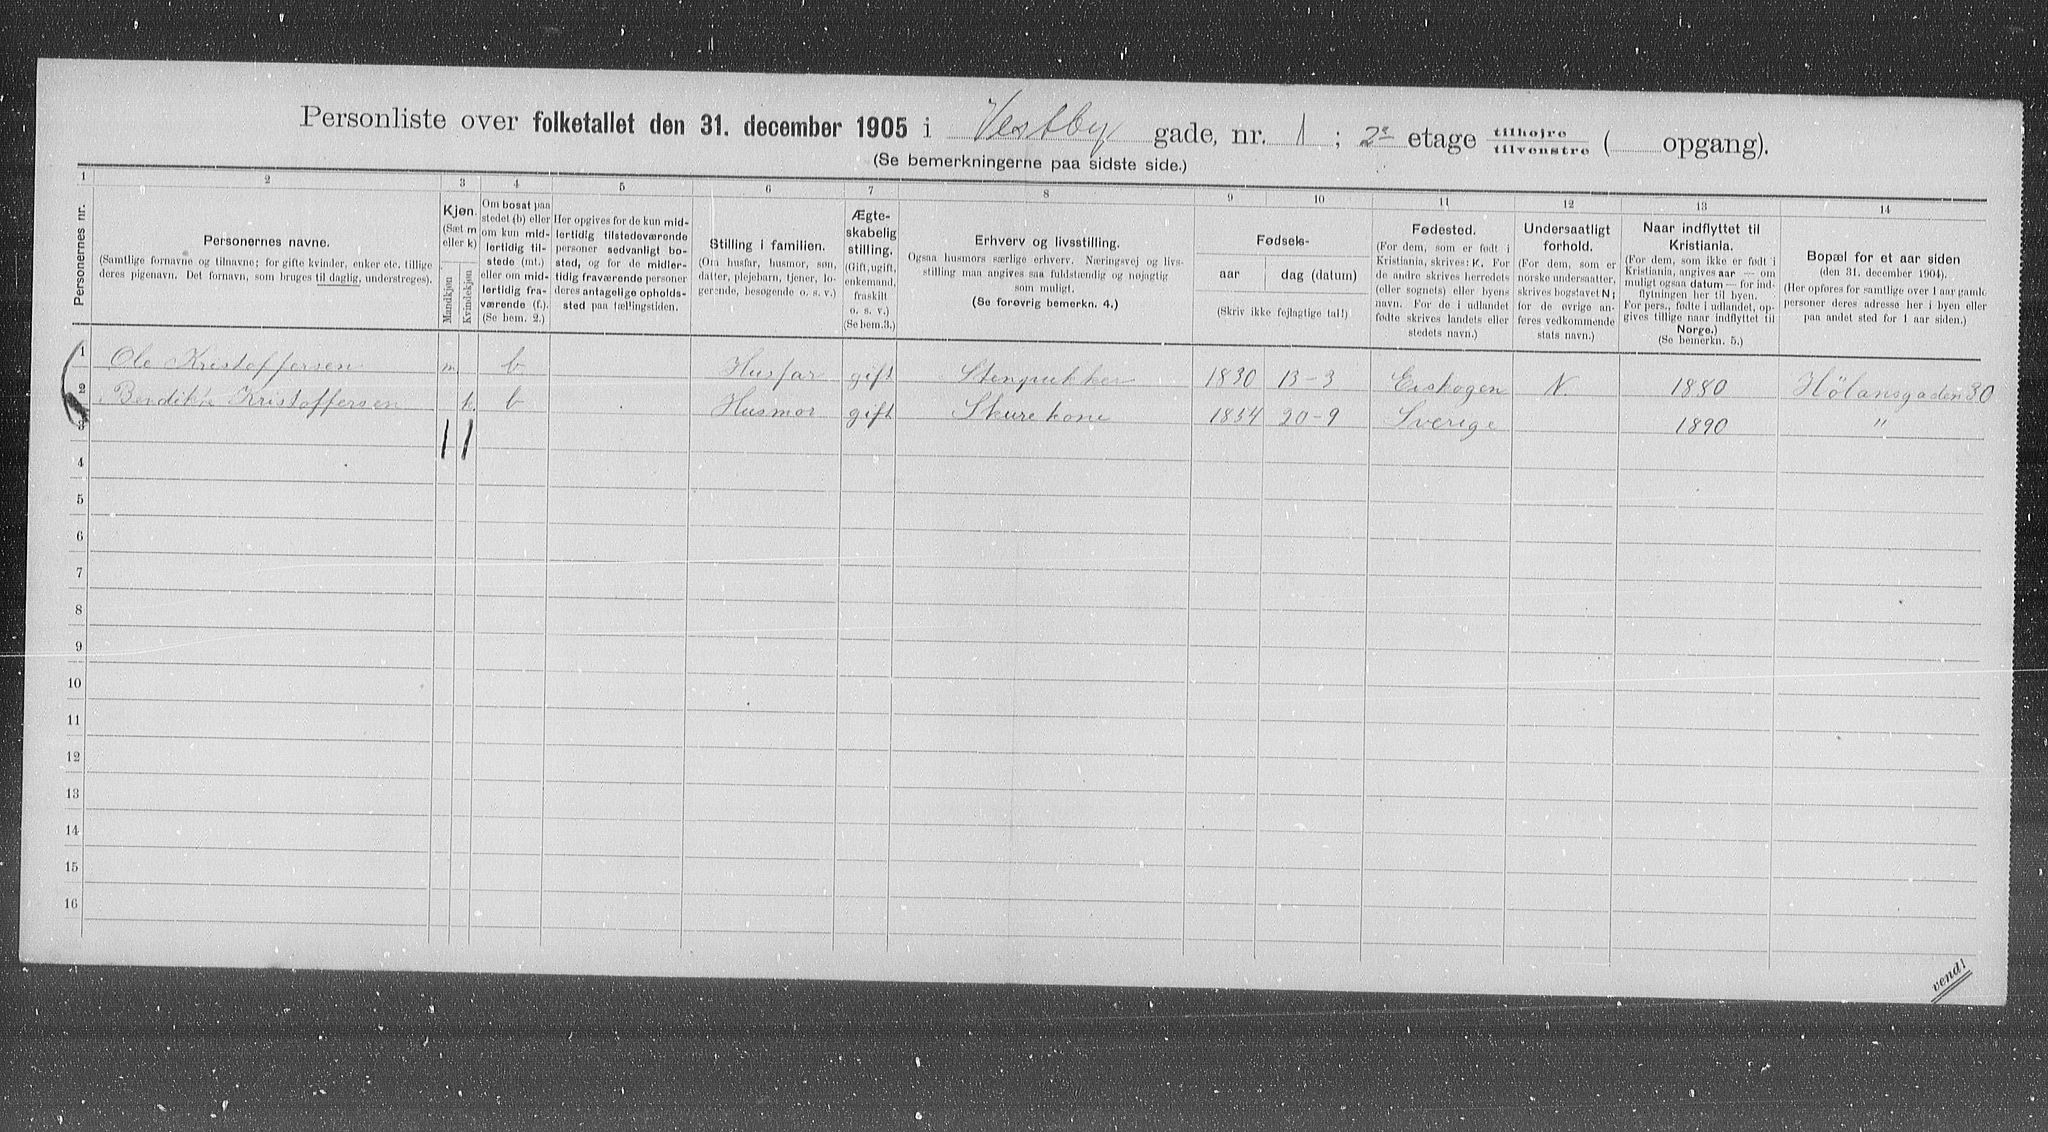 Personliste over folketallet den 31. december 1905 i Vestby gade, nr. 1 ; 2e etage tilhøjre tilvenstre ( opgang).
(Se bemerkningerne paa sidste side.)
1 2 3 4 5 6 7 8 9 10 11 12 13 14
Personernes nr.
Personernes navne.
(Samtlige fornavne og tilnavne; for gifte kvinder, enker etc. tillige
deres pigenavn. Det fornavn, som bruges til daglig, understreges).
Kjøn.
(Sæt m
eller k)
Mandkjøn
Kvindekjøn
Om bosat paa
stedet (b) eller
om kun mid-
lertidig til-
stede (mt.)
eller om mid-
lertidig fra-
værende (f.).
(Se bem. 2.)
Her opgives for de kun mid-
lertidig tilstedeværende
personer sedvanligt bo-
sted, og for de midler-
tidig fraværende personer
deres antagelige opholds-
sted paa tællingstiden.
Stilling i familien.
(Om husfar, husmor, søn,
datter, plejebarn, tjener, lo-
gerende, besøgende o. s. v.)
Ægte-
skabelig
stilling.
(Gift, ugift,
enkemand,
fraskilt
o. s. v.)
(Se bem.3.)
Erhverv og livsstilling.
Ogsaa husmors særlige erhverv. Næringsvej og livs-
stilling maa angives saa fuldstændig og nøjagtig
som muligt.
(Se forøvrig bemerkn. 4.)
Fødsels-
aar
dag (datum)
(Skriv ikke fejlagtige tal!)
Fødested.
(For dem, som er født i
Kristiania, skrives: K. For
de andre skrives herredets
(eller sognets) eller byens
navn. For de i udlandet
fødte skrives landets eller
stedets navn.)
Undersaatligt
forhold.
(For dem, som er
norske undersaatter,
skrives bogstavet N;
for de øvrige an-
føres vedkommende
stats navn.)
Naar indflyttet til
Kristiania.
(For dem, som ikke er født i
Kristiania, angives aar — om
muligt ogsaa datum — for ind-
flytningen her til byen.
For pers., fødte i udlandet, op-
gives tillige naar indflyttet til
Norge.)
(Se bemerkn. 5.)
Bopæl for et aar siden
(den 31. december 1904).
(Her opføres for samtlige over 1 aar gamle
personer deres adresse her i byen eller
paa andet sted for 1 aar siden.)
1 Ole Kristoffersen m b Husfar gift Stenpukker 1830 13-3 Eidskogen N. 1880 Hølansgaden 30
2 Bendikte Kristoffersen k b Husmor gift Skurekone 1834 20-9 Sverige 1890 "
3 1 1
4
5
6
7
8
9
10
11
12
13
14
15
16
vend!